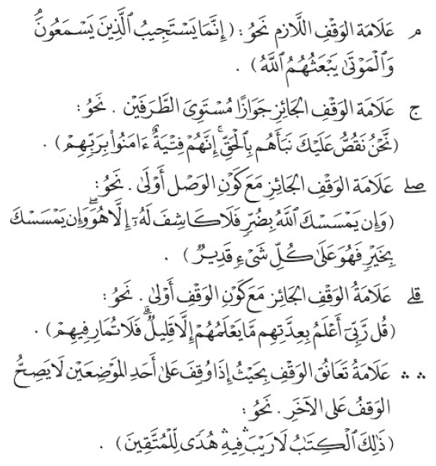 م عَلَامَة الوَقْفِ اللَّازِم نَحْوُ : ﴿ إِنَّمَا يَسْتَجِيبُ ٱلَّذِينَ يَسْمَعُونَۘ
وَٱلْمَوْتَىٰ يَبْعَثُهُمُ ٱللَّهُ ﴾ .
ج عَلَامَة الوَقْفِ الجَائِز جَوَازًا مُسْتَوِىَ الطَّرَفَيْن . نَحْوُ :
﴿ نَّحْنُ نَقُصُّ عَلَيْكَ نَبَأَهُم بِٱلْحَقِّۚ إِنَّهُمْ فِتْيَةٌ ءَامَنُوا۟ بِرَبِّهِمْ ﴾ .
صلے عَلَامَة الوَقْفِ الجَائِز مَعَ كَوْنِ الوَصْل أَوْلَى . نَحْوُ :
﴿ وَإِن يَمْسَسْكَ ٱللَّهُ بِضُرٍّ فَلَا كَاشِفَ لَهُۥٓ إِلَّا هُوَۖ وَإِن يَمْسَسْكَ
بِخَيْرٍ فَهُوَ عَلَىٰ كُلِّ شَىْءٍ قَدِيرٌ ﴾ .
قلے عَلَامَةُ الوَقْفِ الجَائِز مَعَ كَوْنِ الوَقْفِ أَوْلَى . نَحْوُ :
﴿ قُل رَّبِّىٓ أَعْلَمُ بِعِدَّتِهِم مَّا يَعْلَمُهُمْ إِلَّا قَلِيلٌۗ فَلَا تُمَارِ فِيهِمْ ﴾ .
∴ ∴ عَلَامَةُ تَعَانُق الوَقْفِ بِحَيْثُ إِذَا وُقِفَ عَلَى أَحَدِ المَوْضِعَيْن لَا يَصِحُّ
الوَقْفُ عَلَى الآخَر . نَحْوُ :
﴿ ذَٰلِكَ ٱلْكِتَٰبُ لَا رَيْبَۛ فِيهِۛ هُدًى لِّلْمُتَّقِينَ ﴾ .